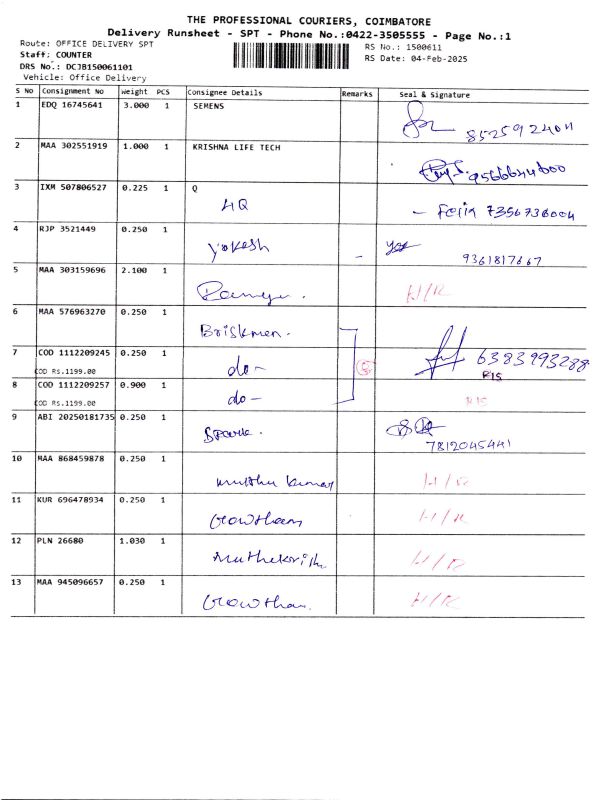 THE PROFESSIONAL COURIERS, COIMBATORE
Delivery Runsheet - SPT - Phone No.:0422-3505555 - Page No.:1
Route: OFFICE DELIVERY SPT
RS No.: 1500611
Staff: COUNTER
RS Date: 04-Feb-2025
DRS No.: DCJB150061101
Vehicle: Office Delivery
S No Consignment No Weight PCS Consignee Details Remarks Seal & Signature
1 EDQ 16745641 3.000 1 SEMENS
8525924011
2 MAA 302551919 1.000 1 KRISHNA LIFE TECH
9566644600
3 IXM 507806527 0.225 1 Q
HQ - Felix 7356736004
4 RJP 3521449 0.250 1
Yokesh - 9361817667
5 MAA 303159696 2.100 1
H/R
6 MAA 576963270 0.250 1
Briskmen.
7 COD 1112209245 0.250 1
COD RS.1199.00 do- 6383993288
RTS
8 COD 1112209257 0.900 1
COD RS.1199.00 do- RTS
9 ABI 20250181735 0.250 1
7812045441
10 MAA 868459878 0.250 1
Muthu Kumar H/R
11 KUR 696478934 0.250 1
Gowtham H/R
12 PLN 26680 1.030 1
H/R
13 MAA 945096657 0.250 1
Gowtham. H/R